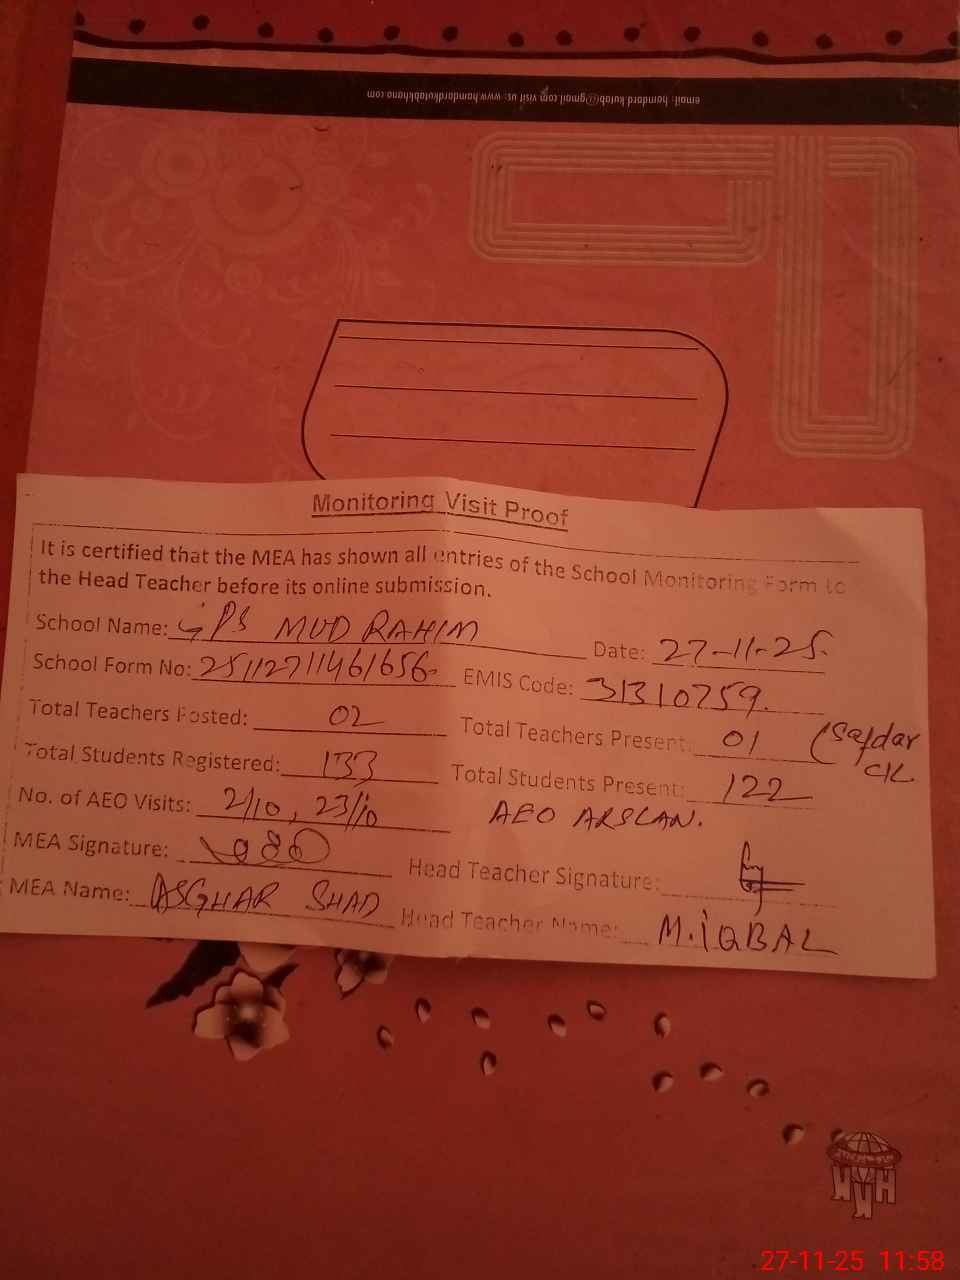 email: hamdard kutab@gmail.com visit us: www.hamdardkutabkhana.com
Monitoring Visit Proof
It is certified that the MEA has shown all entries of the School Monitoring Form to
the Head Teacher before its online submission.
School Name: GPS MUD RAHIM Date: 27-11-25.
School Form No: 25112711461656 EMIS Code: 31310759.
Total Teachers Posted: 02 Total Teachers Present: 01 (Safdar
C/L
Total Students Registered: 133 Total Students Present: 122
No. of AEO Visits: 2/10, 23/10 AEO ARSLAN.
MEA Signature: Head Teacher Signature:
MEA Name: ASGHAR SHAD Head Teacher Name: M. IQBAL
27-11-25 11:58